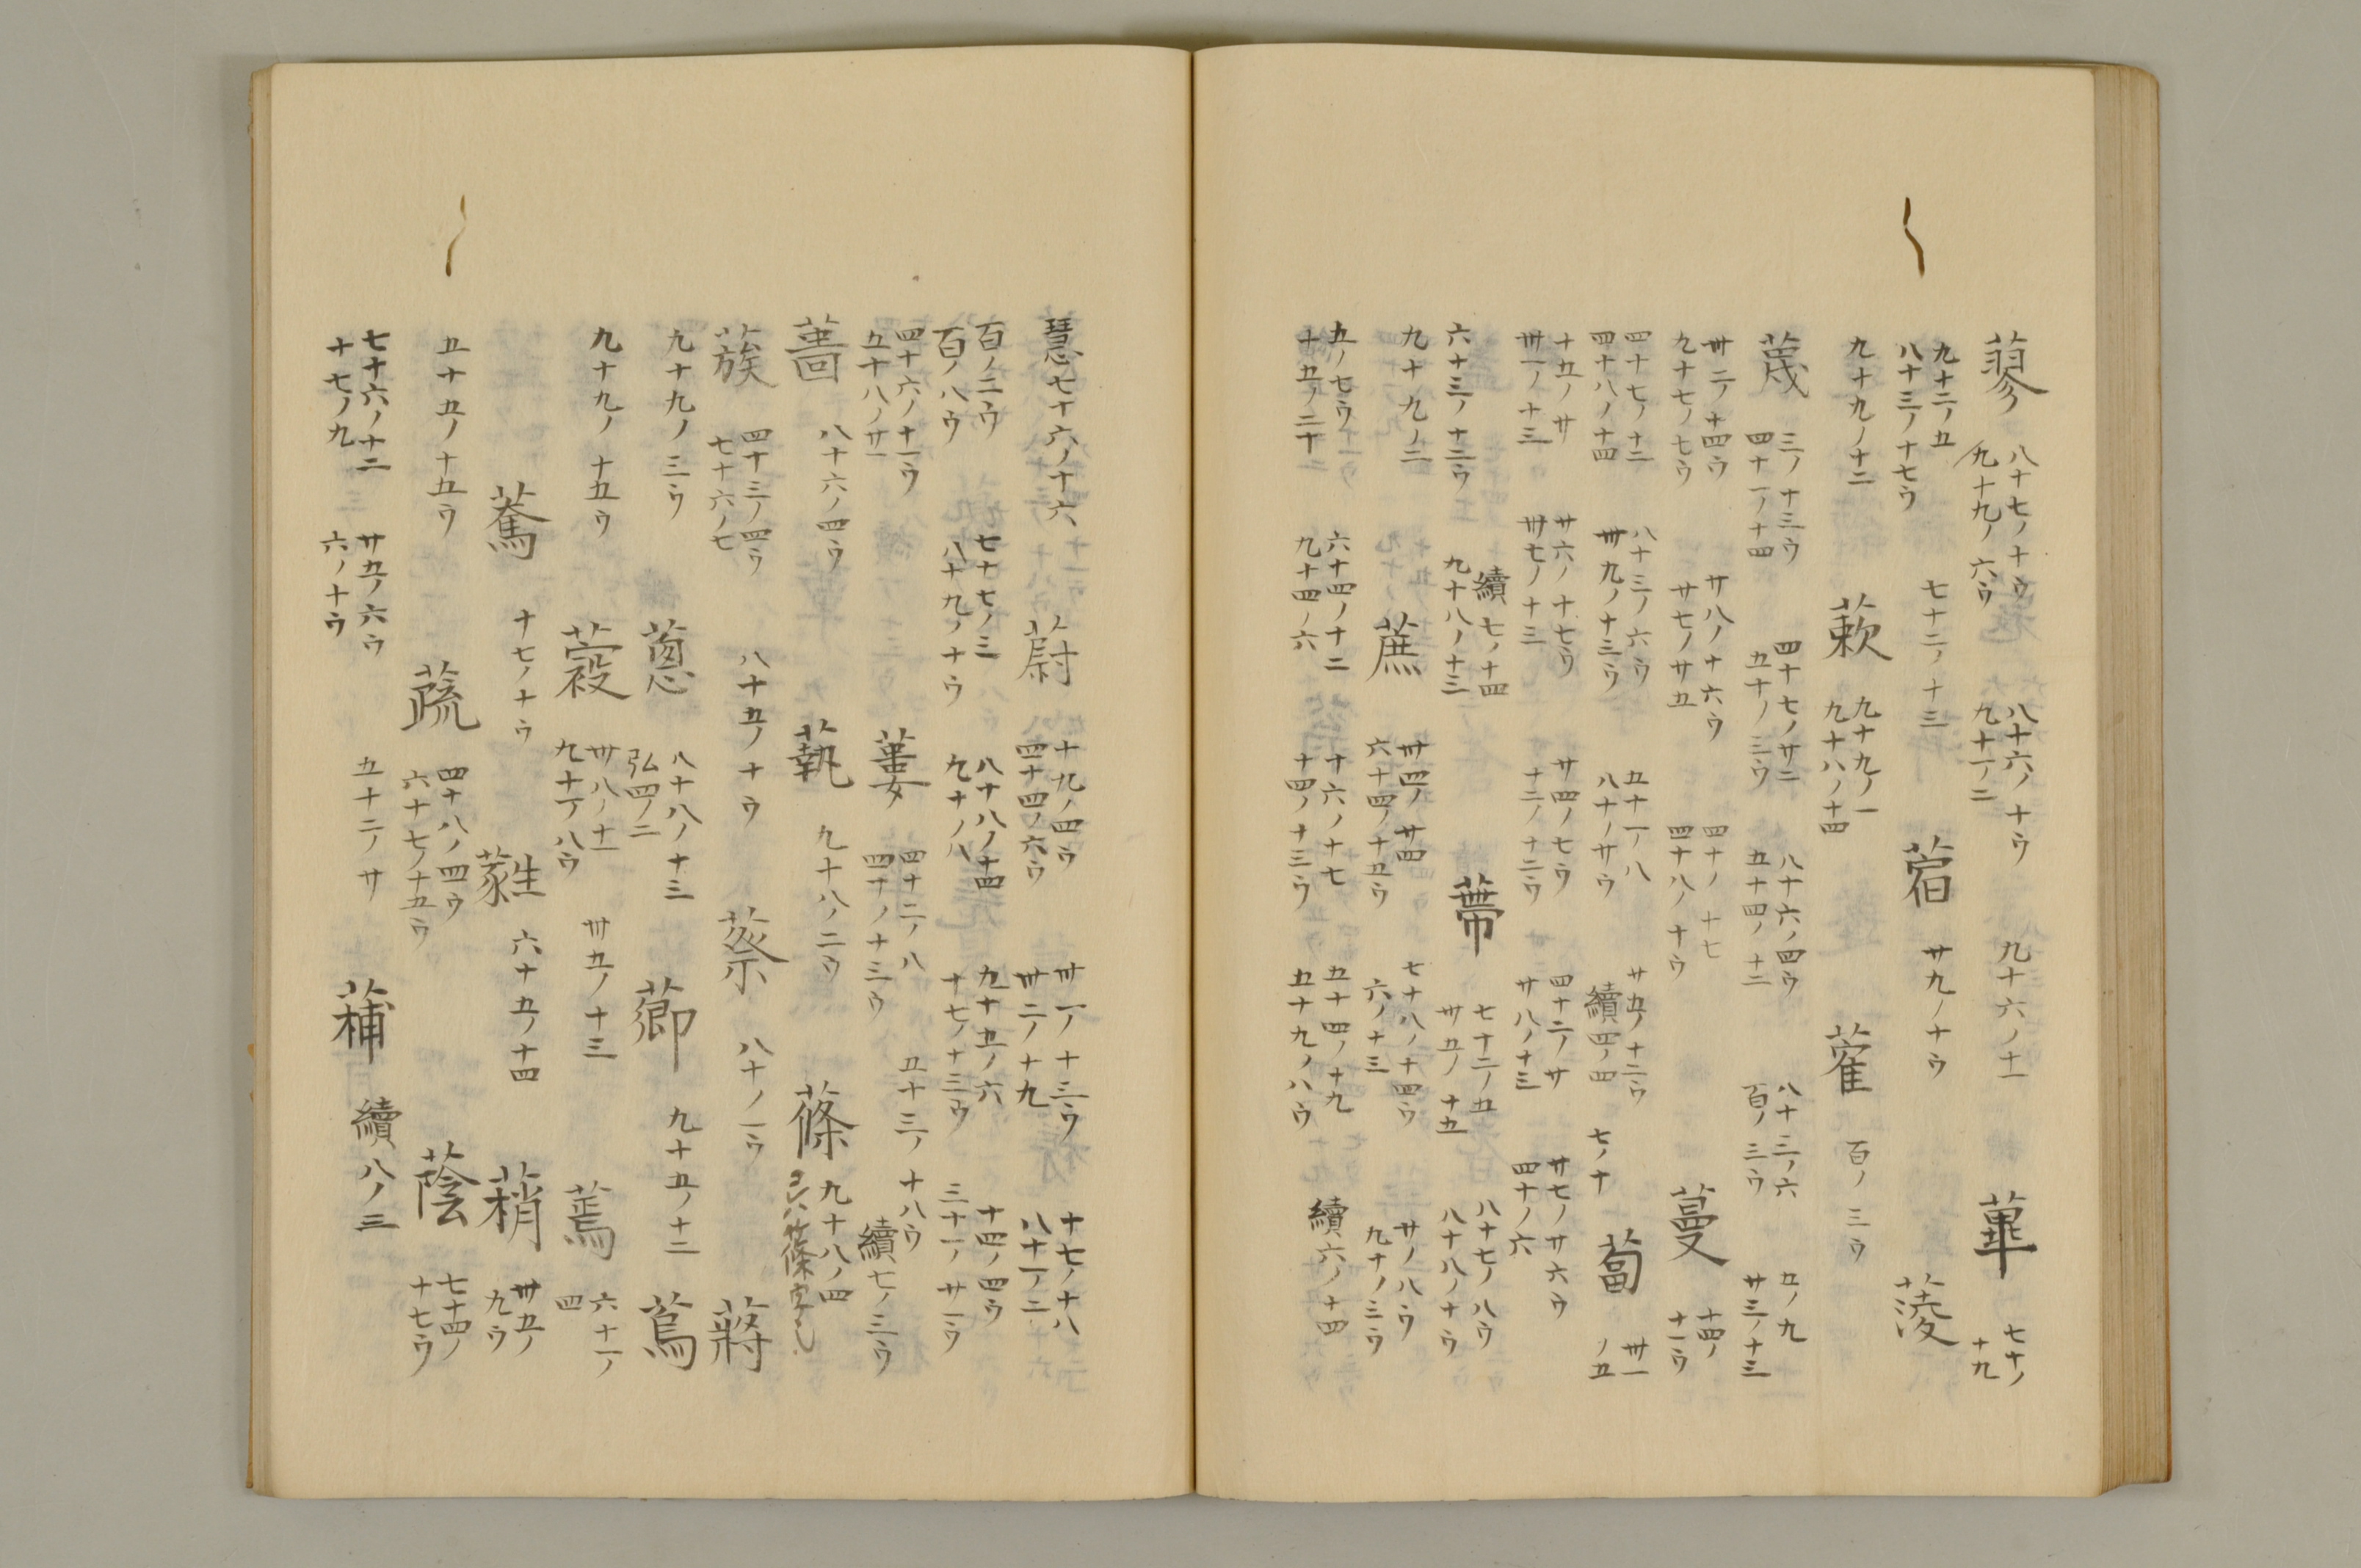 蓼 八十七ノ十ウ 九十九ノ六ウ 八十六ノ十ウ 九十一ノ二 九十六ノ十一 蓽 七十ノ十九
九十二ノ五 八十三ノ十七ウ 七十二ノ十三 蓿 廿九ノ十ウ 蓤
九十九ノ十二 蔌 九十九ノ一 九十八ノ十四 蓷 百ノ三ウ
蔑 三ノ十三ウ 四十一ノ十四 四十七ノ廿二 五十ノ三ウ 八十六ノ四ウ 五十四ノ十二 八十三ノ六 百ノ三ウ 五ノ九 廿三ノ十三
卅二ノ十四ウ 九十七ノ七ウ 廿八ノ十六ウ 廿七ノ廿五 四十ノ十七 四十八ノ十ウ 蔓 十四ノ十一ウ
四十七ノ十二 四十八ノ十四 八十三ノ六ウ 卅九ノ十三ウ 五十一ノ八 八十ノ廿ウ 廿五ノ十二ウ 續四ノ四 七ノ十 蔔 卅一ノ五
十五ノ廿 卅一ノ十三 廿六ノ十七ウ 卅七ノ十三 廿四ノ七ウ 十二ノ十二ウ 四十二ノ廿 廿八ノ十三 廿七ノ廿六ウ 四十ノ六
六十三ノ十二ウ 續七ノ十四 九十八ノ十三 蔕 七十二ノ五 卅五ノ十五 八十七ノ八ウ 八十八ノ十ウ
九十九ノ二 蔗 卅四ノ廿四 六十四ノ十五ウ 七十八ノ十四ウ 六ノ十三 廿ノ八ウ 九十ノ三ウ
五ノ七ウ 十五ノ二十 六十四ノ十二 九十四ノ六 十六ノ十七 十四ノ十三ウ 五十四ノ十九 五十九ノ八ウ 續六ノ十四
七十六ノ十六 蔚 十九ノ四ウ 四十四ノ六ウ 卅一ノ十三ウ 卅二ノ十九 十七ノ十八 八十一ノ二
百ノ二ウ 百ノ八ウ 七十七ノ三 八十九ノ十ウ 八十八ノ十四 九十ノ八 九十五ノ六 十七ノ十三ウ 十四ノ四ウ 三十一ノ廿一ウ
四十六ノ十一ウ 五十八ノ廿一 蔞 四十二ノ八 四十ノ十三ウ 五十三ノ十八ウ 續七ノ三ウ
薔 八十六ノ四ウ 蓺 九十八ノ二ウ 蓧 九十八ノ四
蔟 四十三ノ四ウ 七十六ノ七 八十五ノ十ウ 蔡 八十ノ一ウ 蔣
九十九ノ三ウ 蔥 八十八ノ十三 弘四ノ二 蓈 九十五ノ十二 蔦
九十九ノ十五ウ 蔱 卅八ノ十一 九十一ノ八ウ 卅五ノ十三 蔫 六十一ノ四
驀 十七ノ十ウ 蕤 六十五ノ十四 蕱 卅五ノ九ウ
五十五ノ十五ウ 蔬 四十八ノ四ウ 六十七ノ十五ウ 蔭 七十四ノ十七ウ
七十六ノ十二 十七ノ九 廿五ノ六ウ 六ノ十ウ 五十二ノ廿 續八ノ三